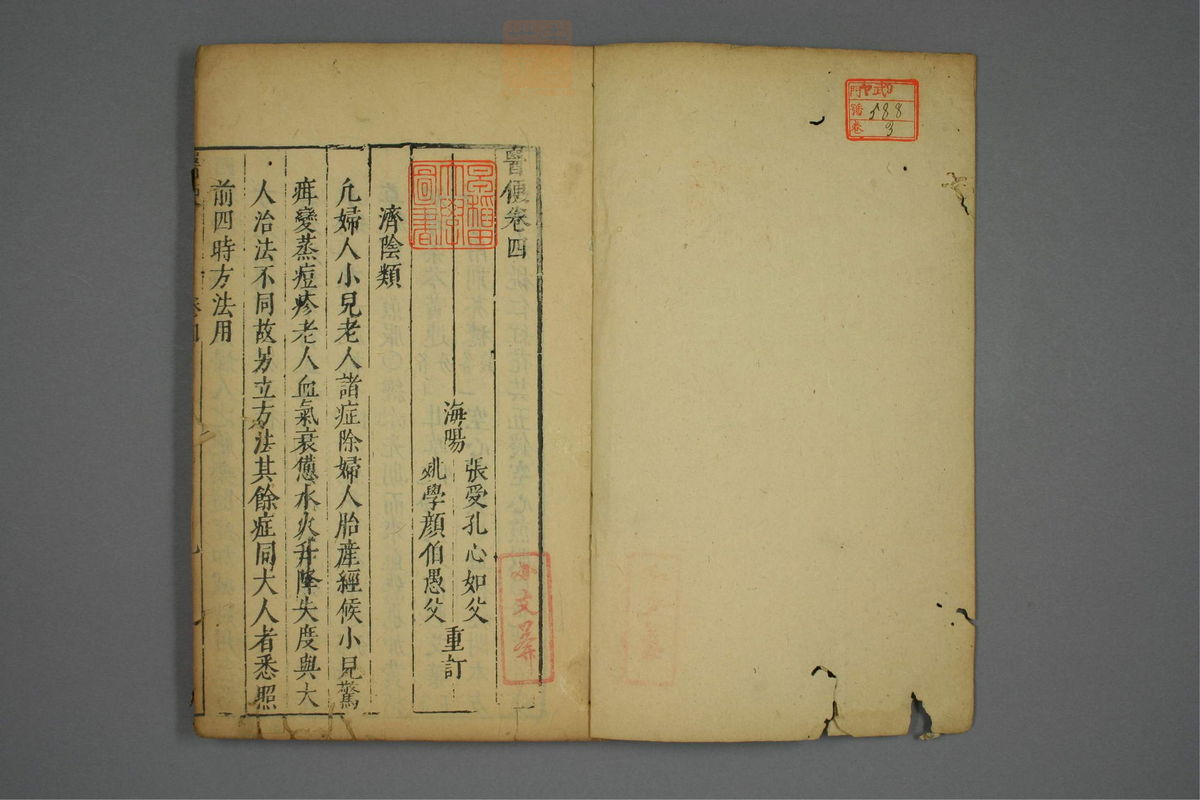 門
號 588
卷 3
醫便卷四
早稲田
大學
圖書
海陽
張受孔心如父
姚學顔伯愚父
重訂
濟陰類
凢婦人小兒老人諸症除婦人胎産經候小兒驚
疳變蒸痘疹老人血氣衰憊水火升降失度與大
人治法不同故另立方法其餘症同大人者悉照
前四時方法用